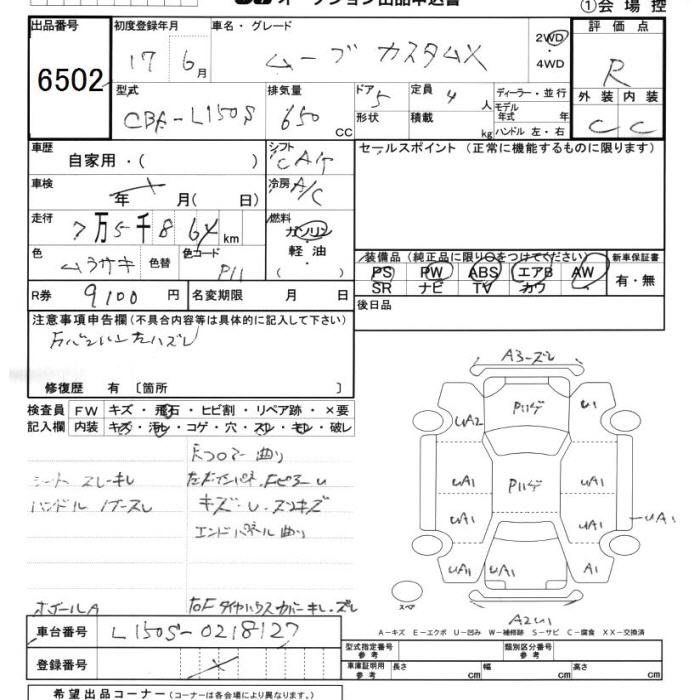 オークション出品申込書
①会場控
出品番号 初度登録年月 車名・グレード 評価点
6502 17 6月 ムーブ カスタムX 2WD 4WD R
型式 排気量 ドア 定員 ディーラー・並行 外装 内装
CBA-L150S 650 CC 5 4 人 モデル年式 年 C C
形状 積載 kg ハンドル 左・右
車歴 シフト セールスポイント (正常に機能するものに限ります)
自家用・( ) CAT
車検 冷房
年 月( 日) A/C
走行 燃料
7万5千86 km ガソリン
色 色替 色コード 軽・油
ムラサキ P11 ( )
装備品 (純正品に限り○をつけてください) 新車保証書
PS PW ABS エアB AW 有・無
SR ナビ TV カワ
R券 9100円 名変期限 月 日 後日品
注意事項申告欄 (不具合内容等は具体的に記入して下さい)
修復歴 有 〔箇所 〕
検査員 FW キズ・飛石・ヒビ割・リペア跡・×要
記入欄 内装 キズ・汚レ・コゲ・穴・スレ・モレ・破レ
シート スレ キレ
ハンドル
キズ・U・スリキズ
エンドパネル曲り
A3
UA2 P11ゲ U1
UA1 P11ゲ UA1
UA1 UA1 UA1
UA1 A1
スペア
A2U1
A-キズ E-エクボ U-凹み W-補修跡 S-サビ C-腐食 XX-交換済
車台番号 L150S-0218127
登録番号
型式指定番号 参考 類別区分番号 参考
車庫証明用 参考 長さ cm 幅 cm 高さ cm
希望出品コーナー (コーナーは各会場により異なります。)